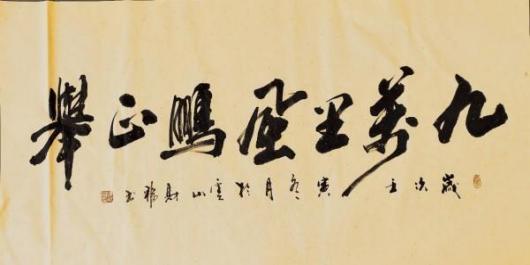 九萬里風鵬正舉
歲次壬寅冬月於雲山財書